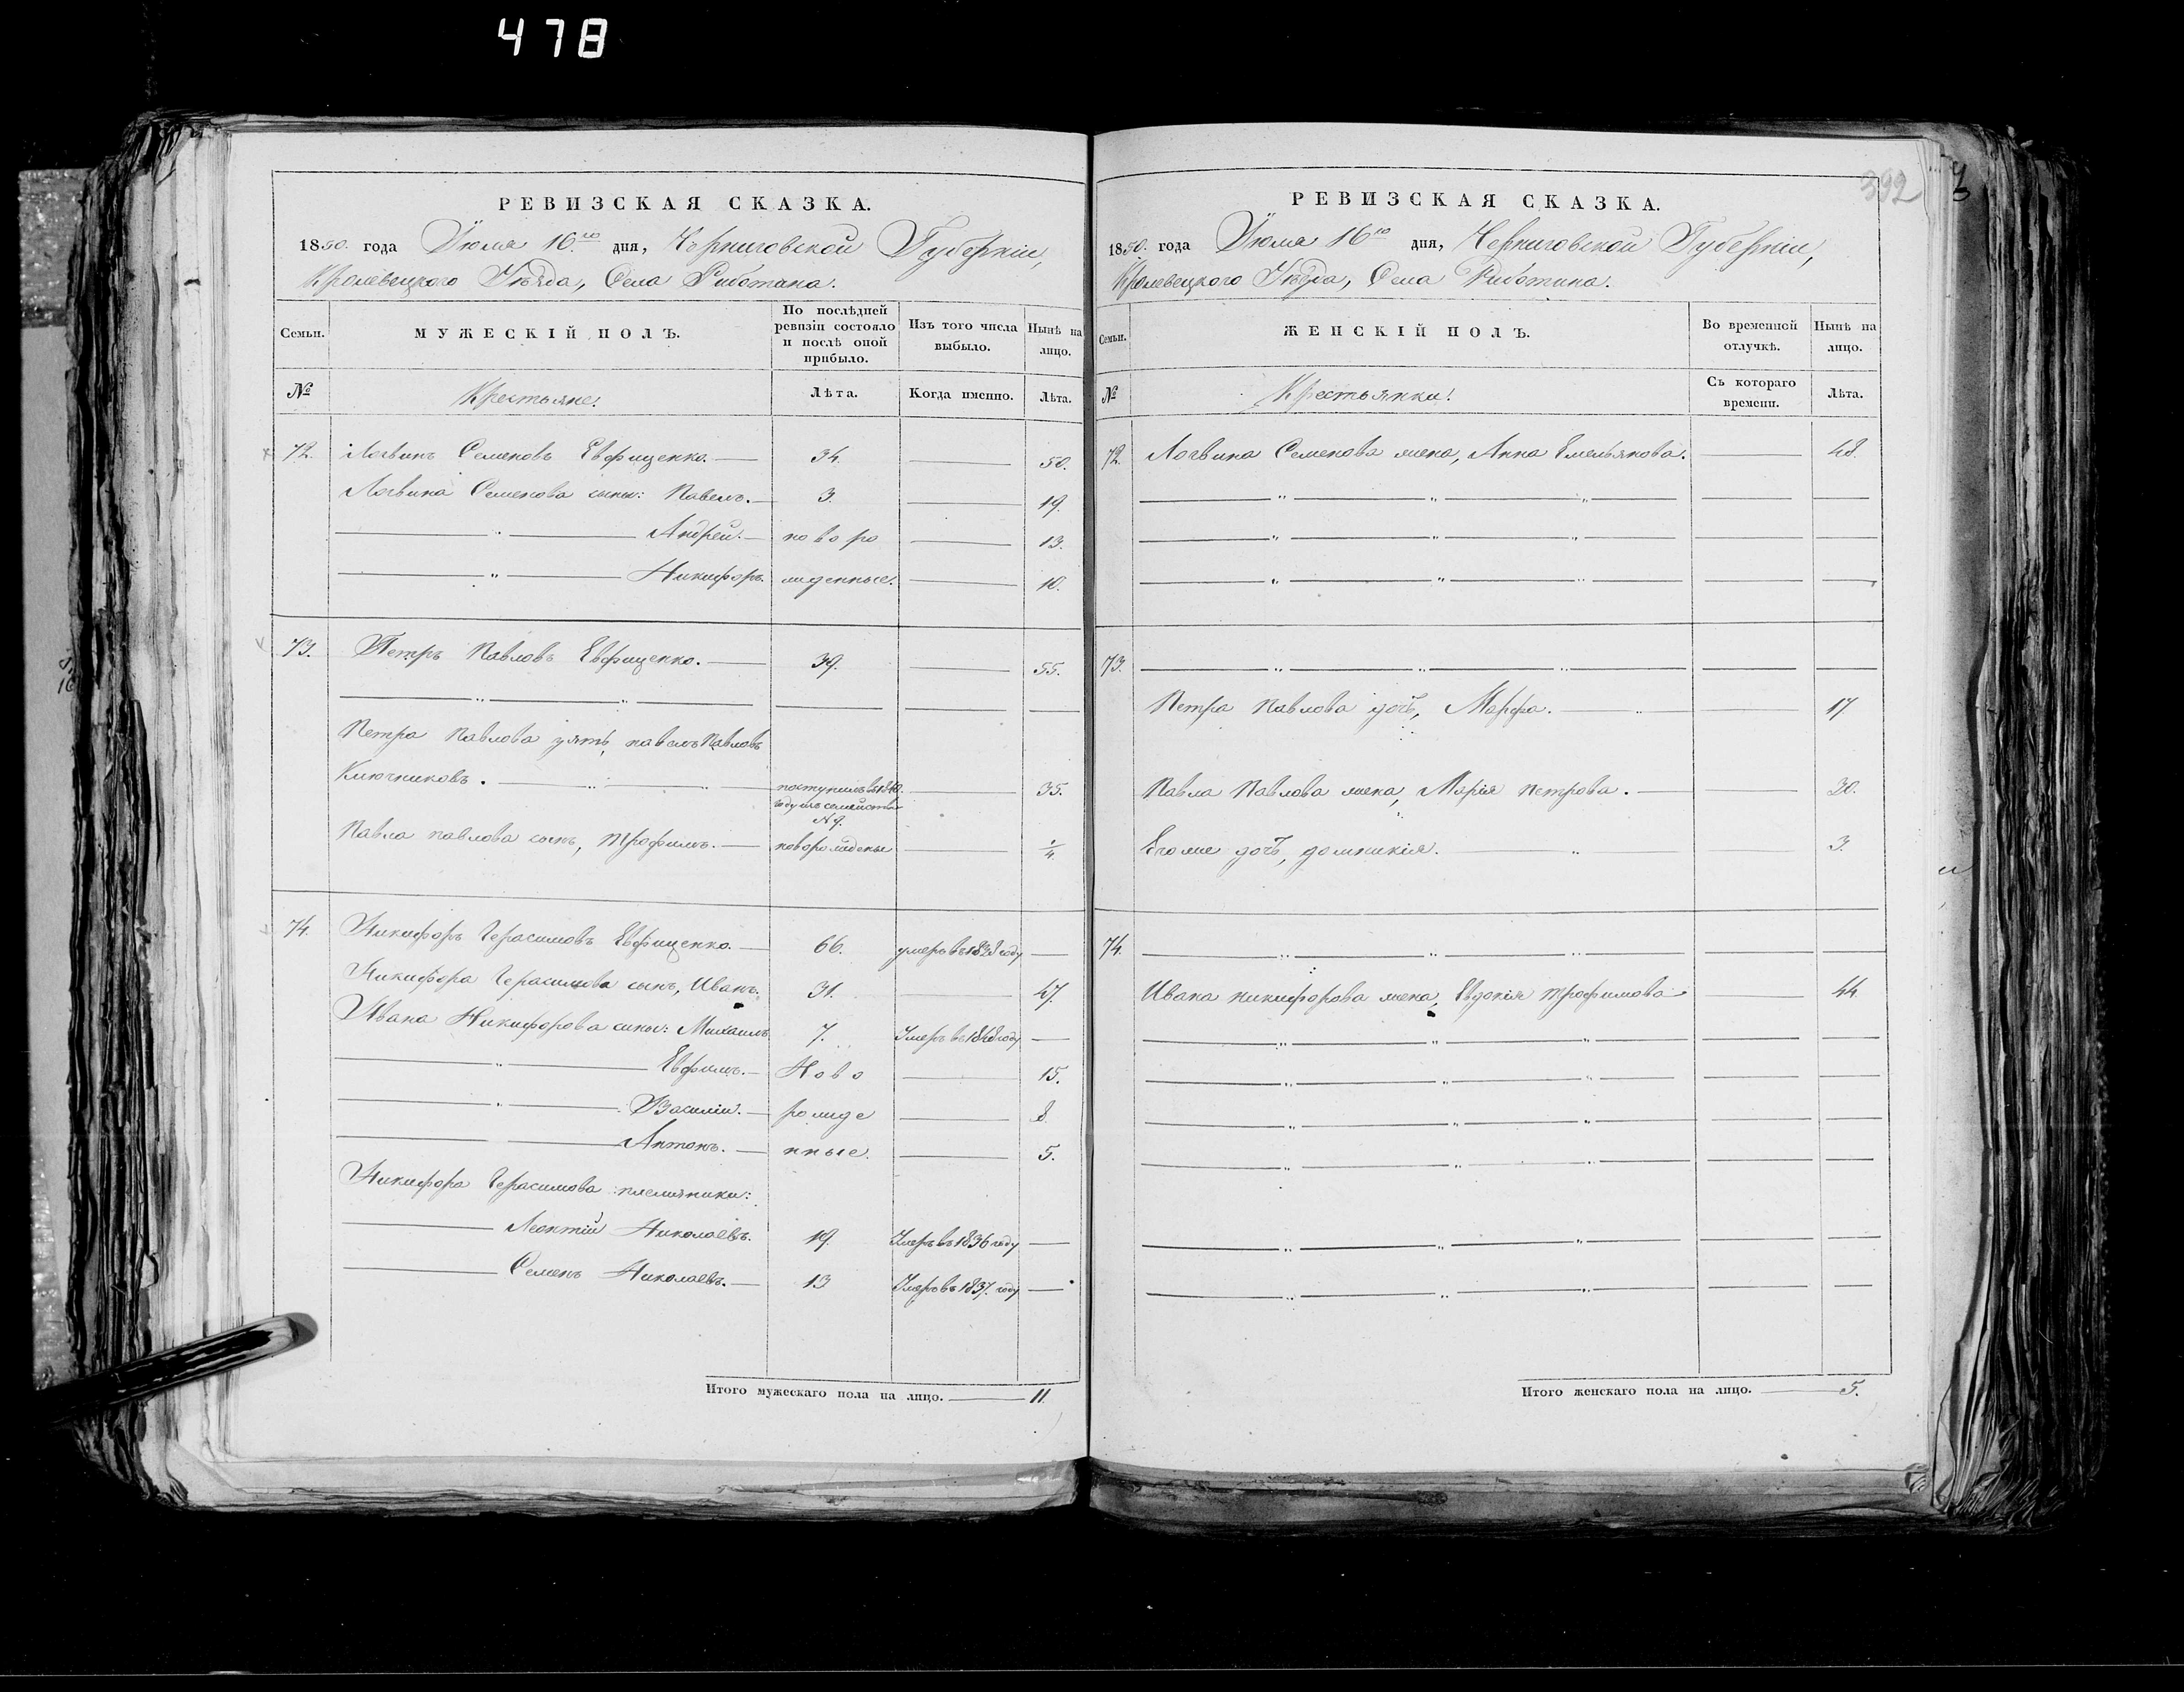 478
РЕВИЗСКАЯ СКАЗКА.
1850. года Іюля 16го дня, Черниговской Губерніи,
Кролевецкого Уѣзда, Села Риботина.
Семьи.
МУЖЕСКІЙ ПОЛЪ.
По послѣдней ревизіи состояло и послѣ оной прибыло.
Изъ того числа выбыло.
Нынѣ на лицо.
№ Крестьяне. Лѣта. Когда именно. Лѣта.
72. Логвинъ Семеновъ Евфищенко. 34. 50.
Логвина Семенова сыны: Павелъ. 3. 19.
" Андрей. новоро 13.
" Никифоръ. жденные. 10.
73. Петръ Павловъ Евфищенко. 39. 55.
" "
Петра Павлова зять, павелъ Павловъ
Ключниковъ. " " поступилъ въ 1840. году изъ семейства №9. 35.
Павла павлова сынъ, трофимъ. новорожденые ¼
74. Никифоръ Герасимовъ Евфищенко. 66. умеръ въ 1838 году
Никифора Герасимова сынъ, Иванъ. 31. 47.
Ивана Никифорова сыны: Михаилъ 7. Умеръ въ 1848 году
" Евфимъ. Ново 15.
" Василіи. рожде 8
Антонъ. нные. 5.
Никифора Герасимова племяники:
Леонтій Николаевъ. 19. Умеръ въ 1836 году
Семенъ Николаевъ. 13 Умеръ въ 1837. году
Итого мужескаго пола на лицо. 11.
392
РЕВИЗСКАЯ СКАЗКА.
1850. года Іюля 16го дня, Черниговской Губерніи,
Кролевецкого Уѣзда, Села Риботина.
Семьи.
ЖЕНСКІЙ ПОЛЪ.
Во временной отлучкѣ.
Нынѣ на лицо.
№ Крестьянки. Съ котораго времени. Лѣта.
72. Логвина Семенова жена, Анна Емельянова. 48.
" " "
" " "
" " "
73. " " "
Петра Павлова дочь, Марфа. " 17
Павла Павлова жена, Марія петрова. 30.
Егоже дочь, домникія. " 3.
74. " " "
Ивана никифорова жена, Евдокія трофимова 44
" " "
" " "
" " "
" " "
" " "
" " "
Итого женскаго пола на лицо. 5.